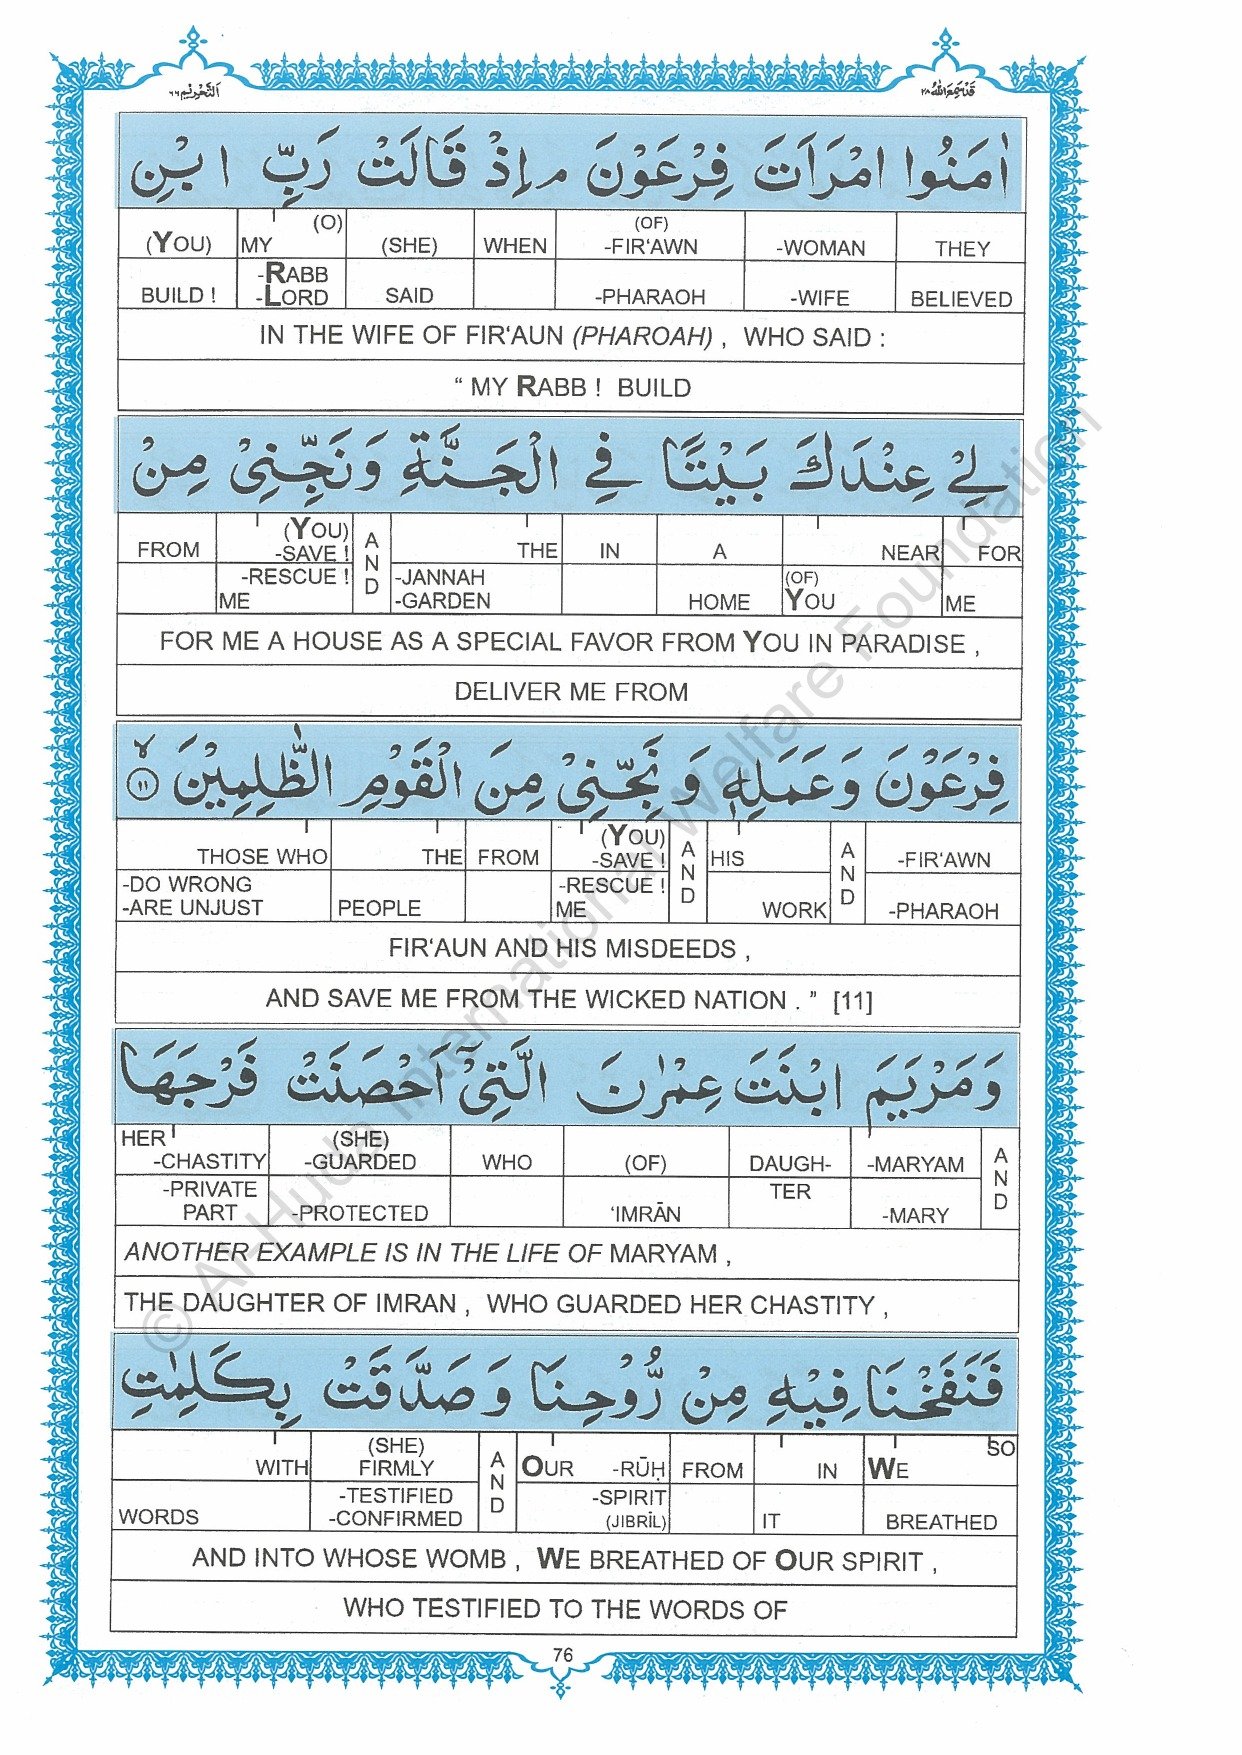 التحريم ٦٦ قد سمع الله ٢٨
اٰمَنُوا امْرَاَتَ فِرْعَوْنَ ۘ اِذْ قَالَتْ رَبِّ ابْنِ
(YOU) MY (O) (SHE) WHEN (OF) -FIR‘AWN -WOMAN THEY
BUILD ! -RABB -LORD SAID -PHARAOH -WIFE BELIEVED
IN THE WIFE OF FIR‘AUN (PHAROAH) , WHO SAID :
“ MY RABB ! BUILD
لِيْ عِنْدَكَ بَيْتًا فِي الْجَنَّةِ وَنَجِّنِيْ مِنْ
FROM (YOU) -SAVE ! AND THE IN A NEAR FOR
-RESCUE ! ME -JANNAH -GARDEN HOME (OF) YOU ME
FOR ME A HOUSE AS A SPECIAL FAVOR FROM YOU IN PARADISE ,
DELIVER ME FROM
فِرْعَوْنَ وَعَمَلِهٖ وَنَجِّنِيْ مِنَ الْقَوْمِ الظّٰلِمِيْنَ ۙ ١١
THOSE WHO THE FROM (YOU) -SAVE ! AND HIS AND -FIR‘AWN
-DO WRONG -ARE UNJUST PEOPLE -RESCUE ! ME WORK -PHARAOH
FIR‘AUN AND HIS MISDEEDS ,
AND SAVE ME FROM THE WICKED NATION . ” [11]
وَمَرْيَمَ ابْنَتَ عِمْرٰنَ الَّتِيْٓ اَحْصَنَتْ فَرْجَهَا
HER -CHASTITY (SHE) -GUARDED WHO (OF) DAUGH- -MARYAM AND
-PRIVATE PART -PROTECTED ‘IMRĀN TER -MARY
ANOTHER EXAMPLE IS IN THE LIFE OF MARYAM ,
THE DAUGHTER OF IMRAN , WHO GUARDED HER CHASTITY ,
فَنَفَخْنَا فِيْهِ مِنْ رُّوْحِنَا وَصَدَّقَتْ بِكَلِمٰتِ
WITH (SHE) FIRMLY AND OUR -RŪḤ FROM IN WE SO
WORDS -TESTIFIED -CONFIRMED -SPIRIT (JIBRİL) IT BREATHED
AND INTO WHOSE WOMB , WE BREATHED OF OUR SPIRIT ,
WHO TESTIFIED TO THE WORDS OF
76
© Al-Huda International Welfare Foundation